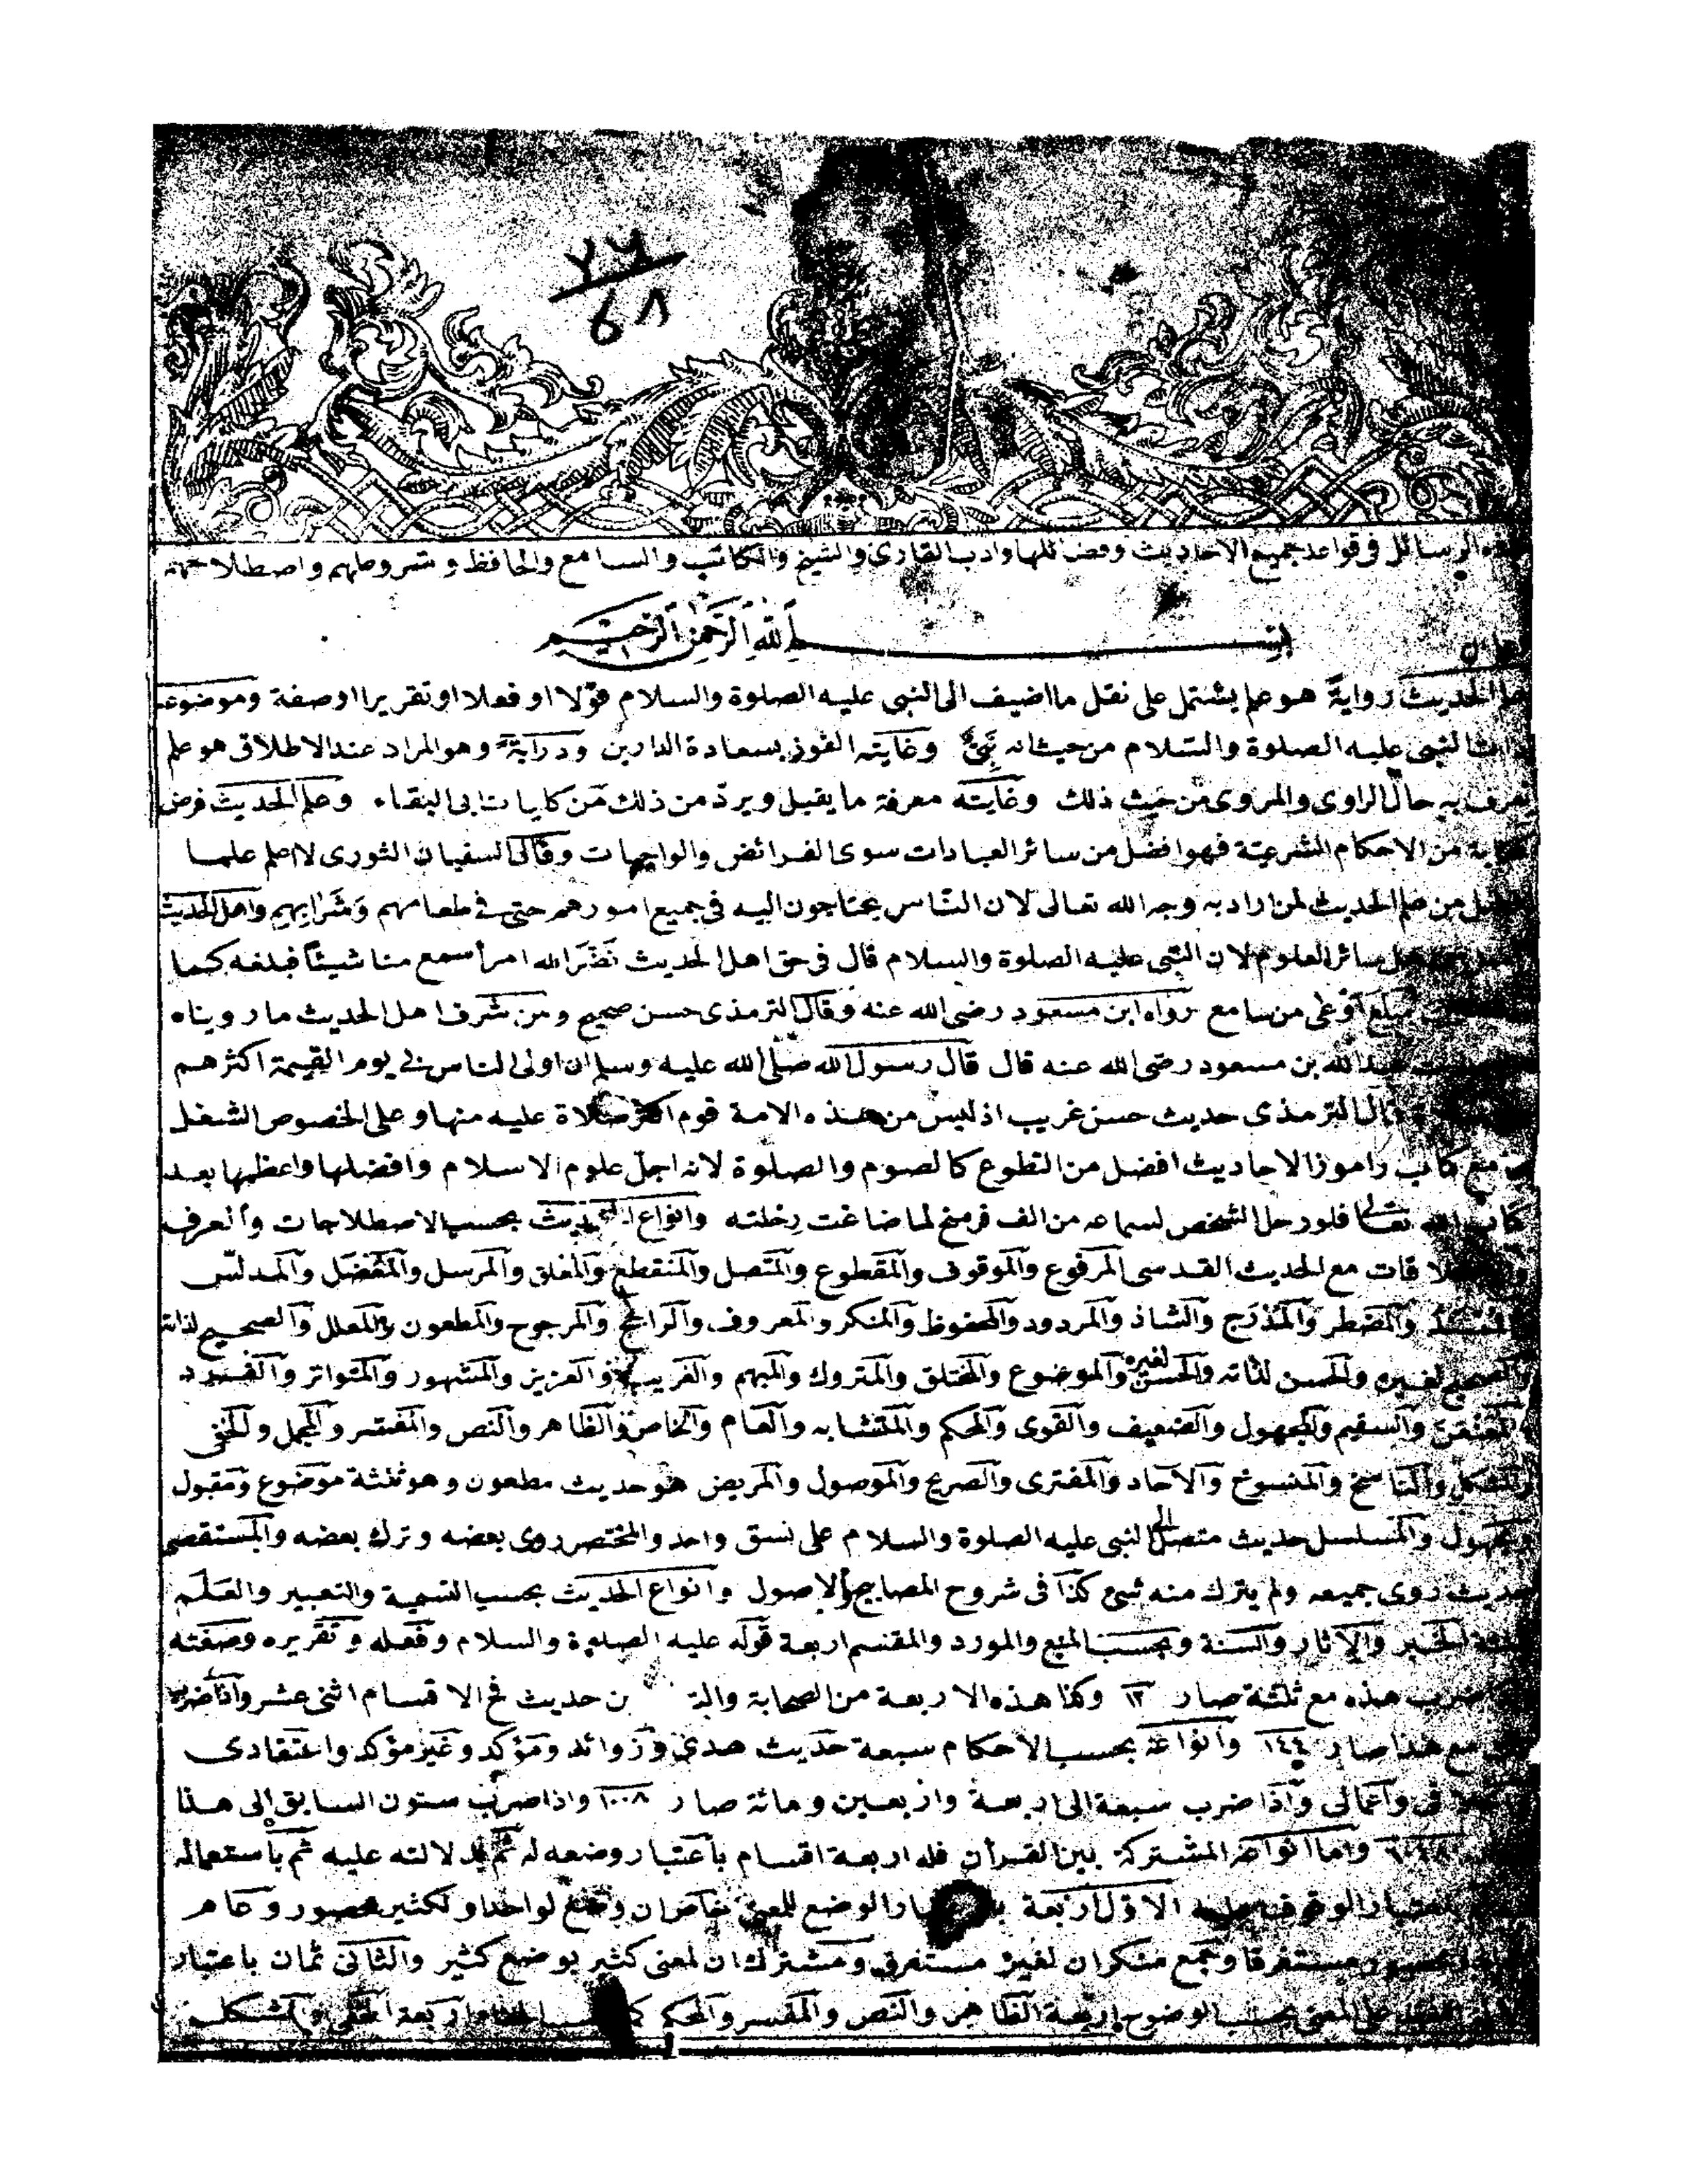 ٧٩
٦٨
الرسائل فى قواعد جميع الاحاديث وفضائلها وادب القارئ والشيخ والكاتب والسامع والحافظ وشروطهم واصطلاحهم
بسم الله الرحمن الرحيم
الحديث رواية هو علم يشتمل على نقل ما اضيف الى النبى عليه الصلوة والسلام قولا او فعلا او تقريرا او صفة وموضوعه
النبى عليه الصلوة والسلام من حيث انه نبى وغايته الفوز بسعادة الدارين ودراية وهو المراد عند الاطلاق هو علم
يعرف به حال الراوى والمروى من حيث ذلك وغايته معرفة ما يقبل ويرد من ذلك من كليات ابى البقاء وعلم الحديث فرض
من الاحكام الشرعية فهو افضل من سائر العبادات سوى الفرائض والواجبات وقال السفيان الثورى لا اعلم علما
من علم الحديث لمن اراد به وجه الله تعالى لان الناس يحتاجون اليه فى جميع امورهم حتى فى طعامهم وشرابهم واهل الحديث
سائر العلوم لان النبى عليه الصلوة والسلام قال فى حق اهل الحديث نضر الله امرأ سمع منا شيئا فبلغه كما
مبلغ اوعى من سامع رواه ابن مسعود رضى الله عنه وقال الترمذى حسن صحيح ومن شرف اهل الحديث ما رويناه
عبد الله بن مسعود رضى الله عنه قال قال رسول الله صلى الله عليه وسلم ان اولى الناس بى يوم القيمة اكثرهم
قال الترمذى حديث حسن غريب اذ ليس من هذه الامة قوم اكثر صلاة عليه منها وعلى الخصوص الشغل
راموز الاحاديث افضل من التطوع كالصوم والصلوة لانه اجل علوم الاسلام وافضلها واعظمها بعد
كتاب الله تعالى فلو رحل الشخص لسماعه من الف فرسخ لما ضاعت رحلته وانواع الحديث بحسب الاصطلاحات والعرف
مع الحديث القدسى المرفوع والموقوف والمقطوع والمتصل والمنقطع والمعلق والمرسل والمعضل والمدلس
والمضطر والمدرج والشاذ والمردود والمحفوظ والمنكر والمعروف والراجح والمرجوح والمطعون والمعلل والصحيح لذاته
والصحيح لغيره والحسن لذاته والحسن لغيره والموضوع والمختلق والمتروك والمبهم والغريب والعزيز والمشهور والمتواتر والفرد
المعنعن والسقيم والمجهول والضعيف والقوى والمحكم والمتشابه والعام والخاص والظاهر والنص والمفسر والمجمل والخفى
والمشكل والناسخ والمنسوخ والآحاد والمفترى والصريح والموصول والمريض هو حديث مطعون وهو ثلثة موضوع ومقبول
ومجهول والمسلسل حديث متصل الى النبى عليه الصلوة والسلام على نسق واحد والمختصر روى بعضه وترك بعضه والمستقصى
حديث روى جميعه ولم يترك منه شئ كذا فى شروح المصابيح والاصول وانواع الحديث بحسب التسمية والتعبير والعلم
الخبر والاثار والسنة وبحسب المنبع والمورد والمقسم اربعة قوله عليه الصلوة والسلام وفعله وتقريره وصفته
ضرب هذه مع ثلثة صار ١٢ وكذا هذه الاربعة من الصحابة حديث فح الاقسام اثنى عشر واذا ضرب
مع هذا صار ١٤٤ وانواعه بحسب الاحكام سبعة حديث هدى وزوائد ومؤكد وغير مؤكد واعتقادى
واعمالى واذا ضرب سبعة الى اربعة واربعين ومائة صار ١٠٠٨ واذا ضرب ستون السابق الى هذا
واما انواعه المشتركة بين القرآن فله اربعة اقسام باعتبار وضعه له ثم دلالته عليه ثم باستعماله
الوقوف عليه الاول اربعة الوضع للمعنى خاص ان وضع لواحد او لكثير محصور وعام
مستغرقا وجمع منكر ان لغير مستغرق ومشترك ان لمعنى كثير بوضع كثير والثانى ثمان باعتبار
على المعنى بحسب الوضوح اربعة الظاهر والنص والمفسر والمحكم اربعة الخفى والمشكل